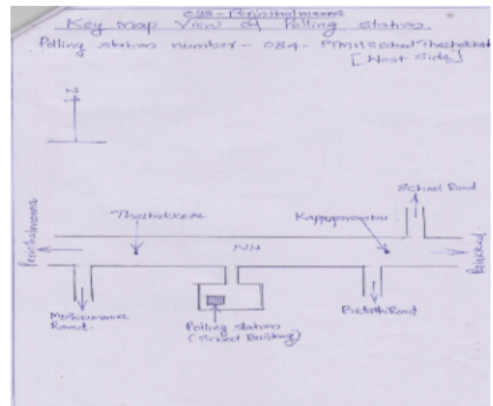 038 - Perinthalmanna
Key Map View of Polling Station
Polling station number - 084 - PTMHSSchool Thazhekkad
[West Side]
N
School Road
Thazhekkode
Perinthalmanna
NH
Palakkad
Road.
Polling station
(School Building)
Road